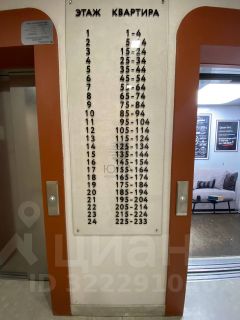 ЭТАЖ КВАРТИРА
1 1-4
2 5-14
3 15-24
4 25-34
5 35-44
6 45-54
7 55-64
8 65-74
9 75-84
10 85-94
11 95-104
12 105-114
13 115-124
14 125-134
15 135-144
16 145-154
17 155-164
18 165-174
19 175-184
20 185-194
21 195-204
22 205-214
23 215-224
24 225-233
ЦИАН